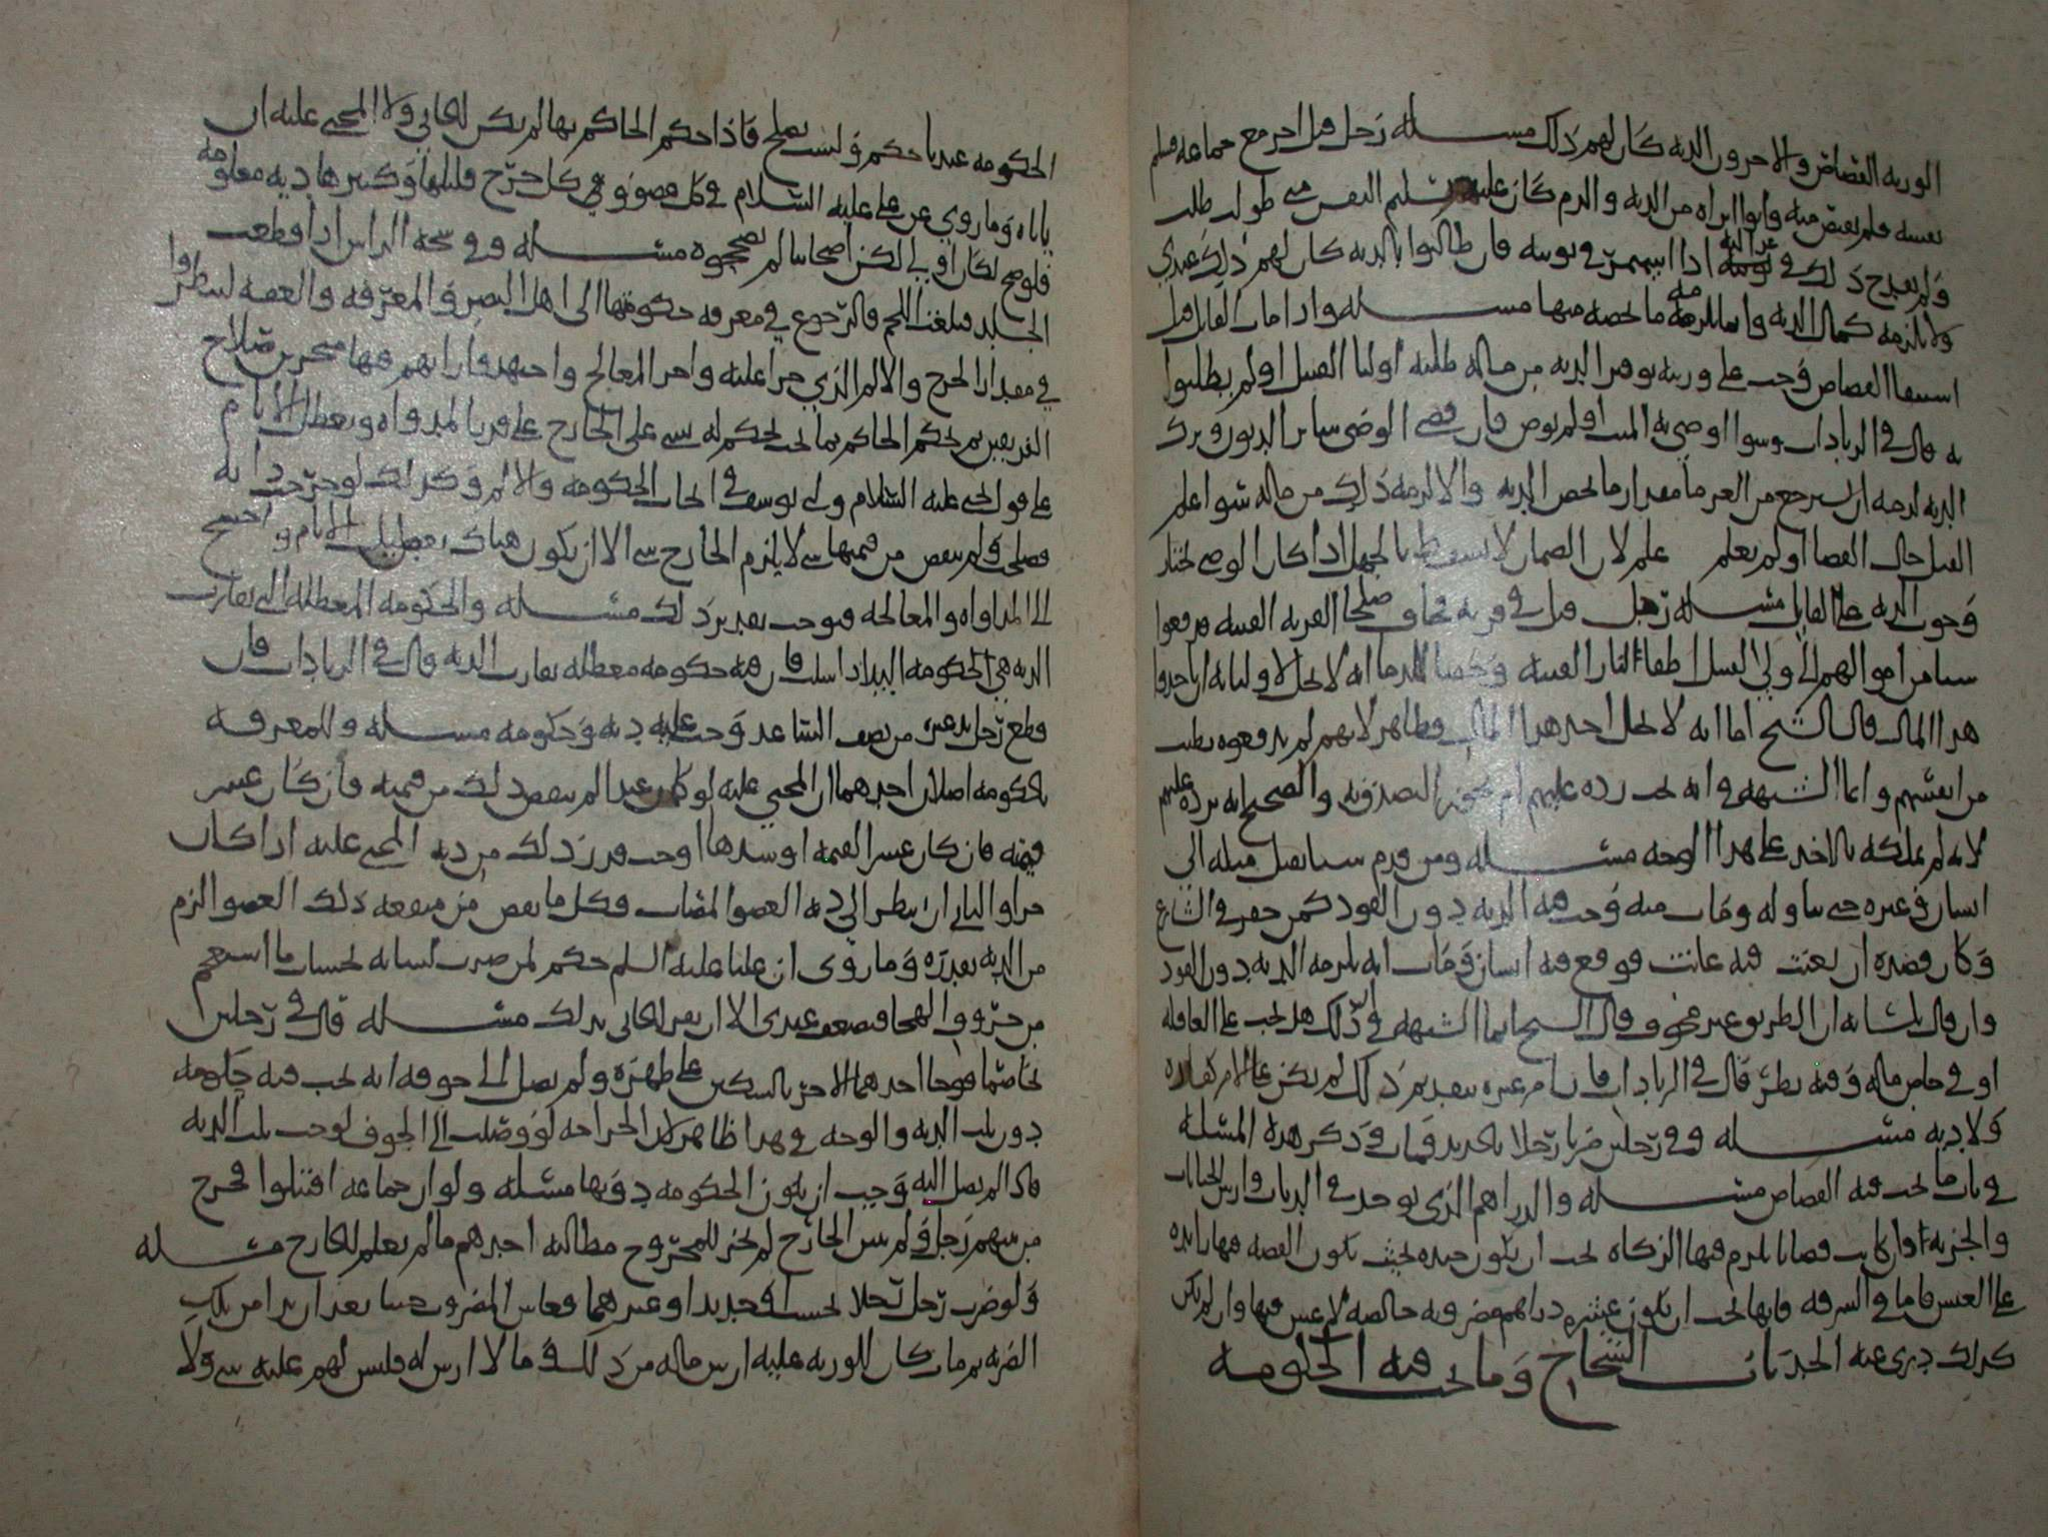 الورثه القصاص والاخرون الديه كان لهم ذلك مسـله رجل قتل اخر مع جماعه فسلم
نفسه فلم يقتص منه وابوا ابراه من الديه والدم كان عليه تسليم النفس متى طولب طلب
ولم يقدح ذلك في توبته اذا استمر في توبته فان طالبوا بالديه كان لهم ذلك عندي
ولا يلزمه كمال الديه وانما يلزمه ما يخصه منها مسـله واذا مات القاتل قبل
استيفا القصاص وجب على ورثته توفير الديه من ماله طلبه اوليا القتيل او لم يطلبوا
به قال في الزيادات وسوا اوصى به الميت او لم يوص فان قضى الوصي ساير الديون وترك
الديه لزمه ان يسترجع من الغرما مقدار ما يخص الديه والا لزمه ذلك من ماله سوا علم
القتل حال القضا او لم يعلم علم لان الضمان لا يسقط بالجهل اذا كان الوصي يختار
وجوب الديه على القاتل مسـله رجل قتل في قريه فخاف صلحا القريه الفتنه فدفعوا
شيا من اموالهم الى ولي القتيل اطفا لنار الفتنه وحقنا للدما انه لا يحل لاوليائه ان ياخذوا
هذا المال قال الشيخ اما انه لا يحل اخذ هذا المال فظاهر لانهم لم يدفعوه بطيب
من انفسهم وانما الشبهه في انه يجب رده عليهم ام يجوز التصدق به والصحيح انه يرده عليهم
لانه لم يملكه بالاخذ على هذا الوجه مسـله ومن قدم شيا يصل مثله الى
انسان وغيره حتى تناوله ومات منه وجب فيه الديه دون القود كمن حفر في الشارع
وكان قصده ان يعنت فيه عانت فوقع فيه انسان ومات انه يلزمه الديه دون القود
وان قال بلسانه ان الطريق غير مخوف وقال الشيخ انما الشبهه في ان ذلك هل يجب على العاقله
او في خاص ماله وفيه نظر قال في الزيادات فان امر غيره بتقديم ذلك لم يكن على الامر كفاره
ولا ديه مسـله وفي رجلين ضربا رجلا بالحديد فمات وذكر هذه المسله
في باب ما يجب فيه القصاص مسـله والدراهم الذي يوخذ في الديات وارش الجنايات
والجزيه وان كانت قضايا يلزم فيها الزكاه يجب ان يكون جيده بحيث تكون الفضه فيها زايده
على الغش فاما في السرقه فانها يجب ان يكون عشره دراهم مضروبه خالصه لا غش فيها وان لم يكن
كذلك دري عنه الحد باب الشجاج وما يجب فيه الحكومه
الحكومه عندنا حكم وليست بصلح فاذا حكم الحاكم بها لم يكن للجاني ولا المجني عليه ان
ياباه وما روي عن علي عليه السلام في كل عضو وفي كل جرح قليلها وكثيرها ديه معلومه
فلو صح لكان اولى لكن اصحابنا لم يصححوه مسـله وفي شجه الراس اذا قطعت
الجلد وبلغت اللحم فالرجوع في معرفه حكومتها الى اهل البصر والمعرفه والعفه لينظروا
في مقدار الجرح والالم الذي جرا عليه واجر المعالج واجتهد فارايهم فيها متحرين صلاح
الفريقين ثم يحكم الحاكم بما يجب يحكم له بشي على الجارح على قدر المداواه وتعطل الايام
على قول يحيى عليه السلام ولي يوسف في ايجاب الحكومه والالم وكذلك لو جرحت دابه
فصلحت ولم ينقص من قيمتها شي لا يلزم الجارح شي الا ان يكون هناك تعطيل الايام واحتيج
الى المداواه والمعالجه فيوجب بقدير ذلك مسـله والحكومه المعطله التي تقارب
الديه هي الحكومه اليد اذا شلت فان فيه حكومه معطله تقارب الديه قال في الزيادات فان
قطع رجل يد غيره من نصف الساعد وجب عليه ديه وحكومه مسـله وللمعرفه
بالحكومه اصلان احدهما ان المجني عليه لو كان عبدا لم ينقص ذلك من قيمته فان كان عشر
قيمته فان كان عشر القيمه او سدسها اوجب قدر ذلك من ديه المجني عليه اذا كان
حرا والثاني ان ينظر الى ديه العضو المصاب فكل ما نقص من منفعه ذلك العضو الزم
من الديه بقدره وما روي ان عليا عليه السلم حكم لمن ضرب لسانه بحساب ما استعجم
من حروف الهجا فضعف عندي الا ان يقر الجاني بذلك مسـله قال في رجلين
تخاصما فوجا احدهما الاخر بالسكين على ظهره ولم يصل الى جوفه انه يجب فيه حكومه
دون ثلث الديه والوجه في هذا ظاهر لان الجراحه لو وصلت الى الجوف لوجب ثلث الديه
فاذا لم يصل اليه وجب ان يكون الحكومه دونها مسله ولو ان جماعه اقتتلوا فجرح
من بينهم رجل ولم يتبين الجارح لم يجز للمجروح مطالبه احدهم ما لم يعلم الجارح مسـله
ولو ضرب رجل رجلا بخشب او حديد او غيرهما فعاش المضروب حينا بعد ان برا من تلك
الضربه ثم مات كان للورثه عليه ارش ماله من ذلك وما لا ارش له فليس لهم عليه شي ولا